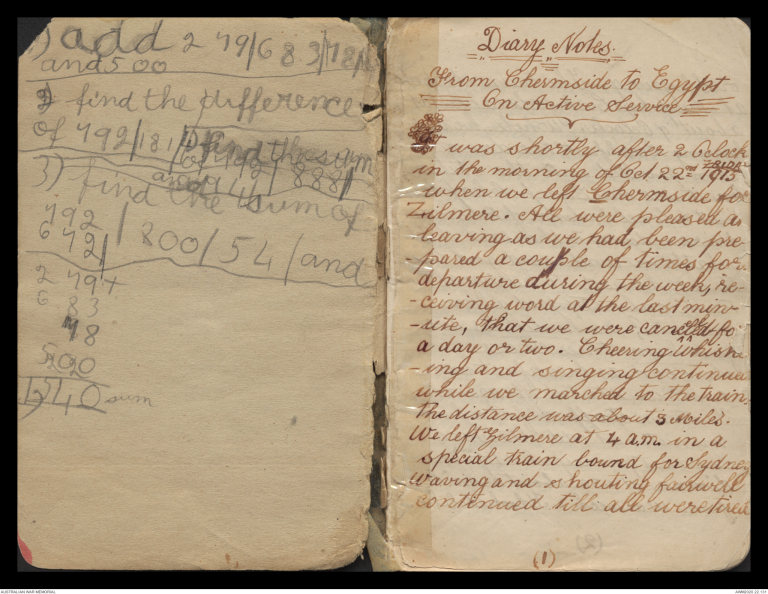 1) add 2 79/6 8 3/78/
and 500
2) find the difference
of 792/181/
find the sum
of 792/888/
and
3) find the sum of
792 / 800/54/and
6 72/
2 79+
6 83
78
500
1540 sum
Diary Notes.
From Chermside to Egypt
On Active Service
It was shortly after 2 Oclock
in the morning of Oct 22nd 1915
when we left Chermside for
Zilmere. All were pleased at
leaving as we had been pre-
-pared a couple of times for
departure during the week, re-
-ceiving word at the last min-
-ute, that we were cancelled for
a day or two. Cheering whistl-
-ing and singing continued
while we marched to the train.
The distance was about 3 Miles.
We left Zilmere at 4 a.m. in a
special train bound for Sydney
waving and shouting fairwell
continued till all were tired
(1)
AUSTRALIAN WAR MEMORIAL